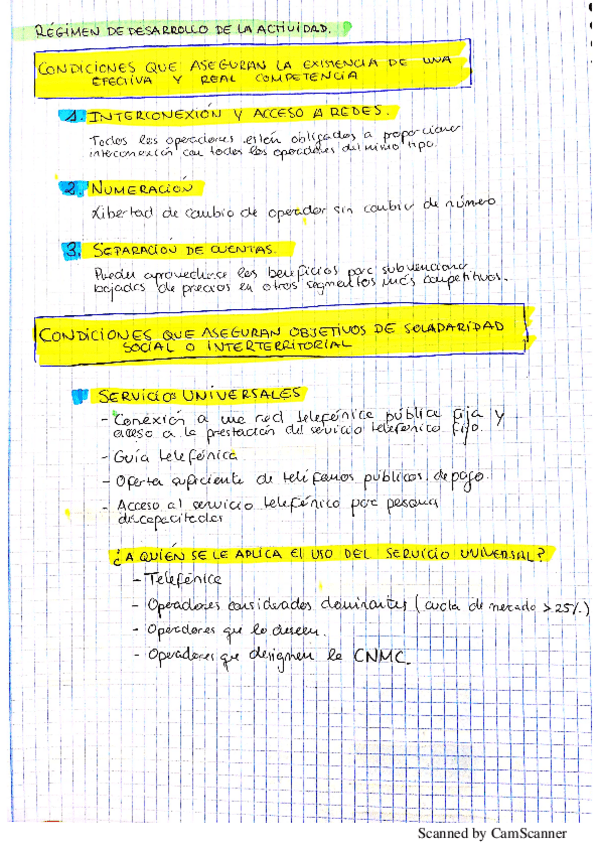 RÉGIMEN DE DESARROLLO DE LA ACTIVIDAD.
CONDICIONES QUE ASEGURAN LA EXISTENCIA DE UNA
EFECTIVA Y REAL COMPETENCIA
1. INTERCONEXIÓN Y ACCESO A REDES.
Todos los operadores están obligados a proporcionar
interconexión con todos los operadores del mismo tipo.
2. NUMERACIÓN
Libertad de cambio de operador sin cambiar de número
3. SEPARACIÓN DE CUENTAS.
Pueden aprovecharse los beneficios para subvencionar
bajadas de precios en otros segmentos más competitivos.
CONDICIONES QUE ASEGURAN OBJETIVOS DE SOLADARIDAD
SOCIAL O INTERTERRITORIAL
SERVICIOS UNIVERSALES
- Conexión a una red telefónica pública fija y
acceso a la prestación del servicio telefónico fijo.
- Guía telefónica
- Oferta suficiente de teléfonos públicos de pago.
- Acceso al servicio telefónico por persona
discapacitadas
¿A QUIÉN SE LE APLICA EL USO DEL SERVICIO UNIVERSAL?
- Telefónica
- Operadores considerados dominantes (cuota de mercado > 25%)
- Operadores que lo deseen.
- Operadores que designen la CNMC.
Scanned by CamScanner